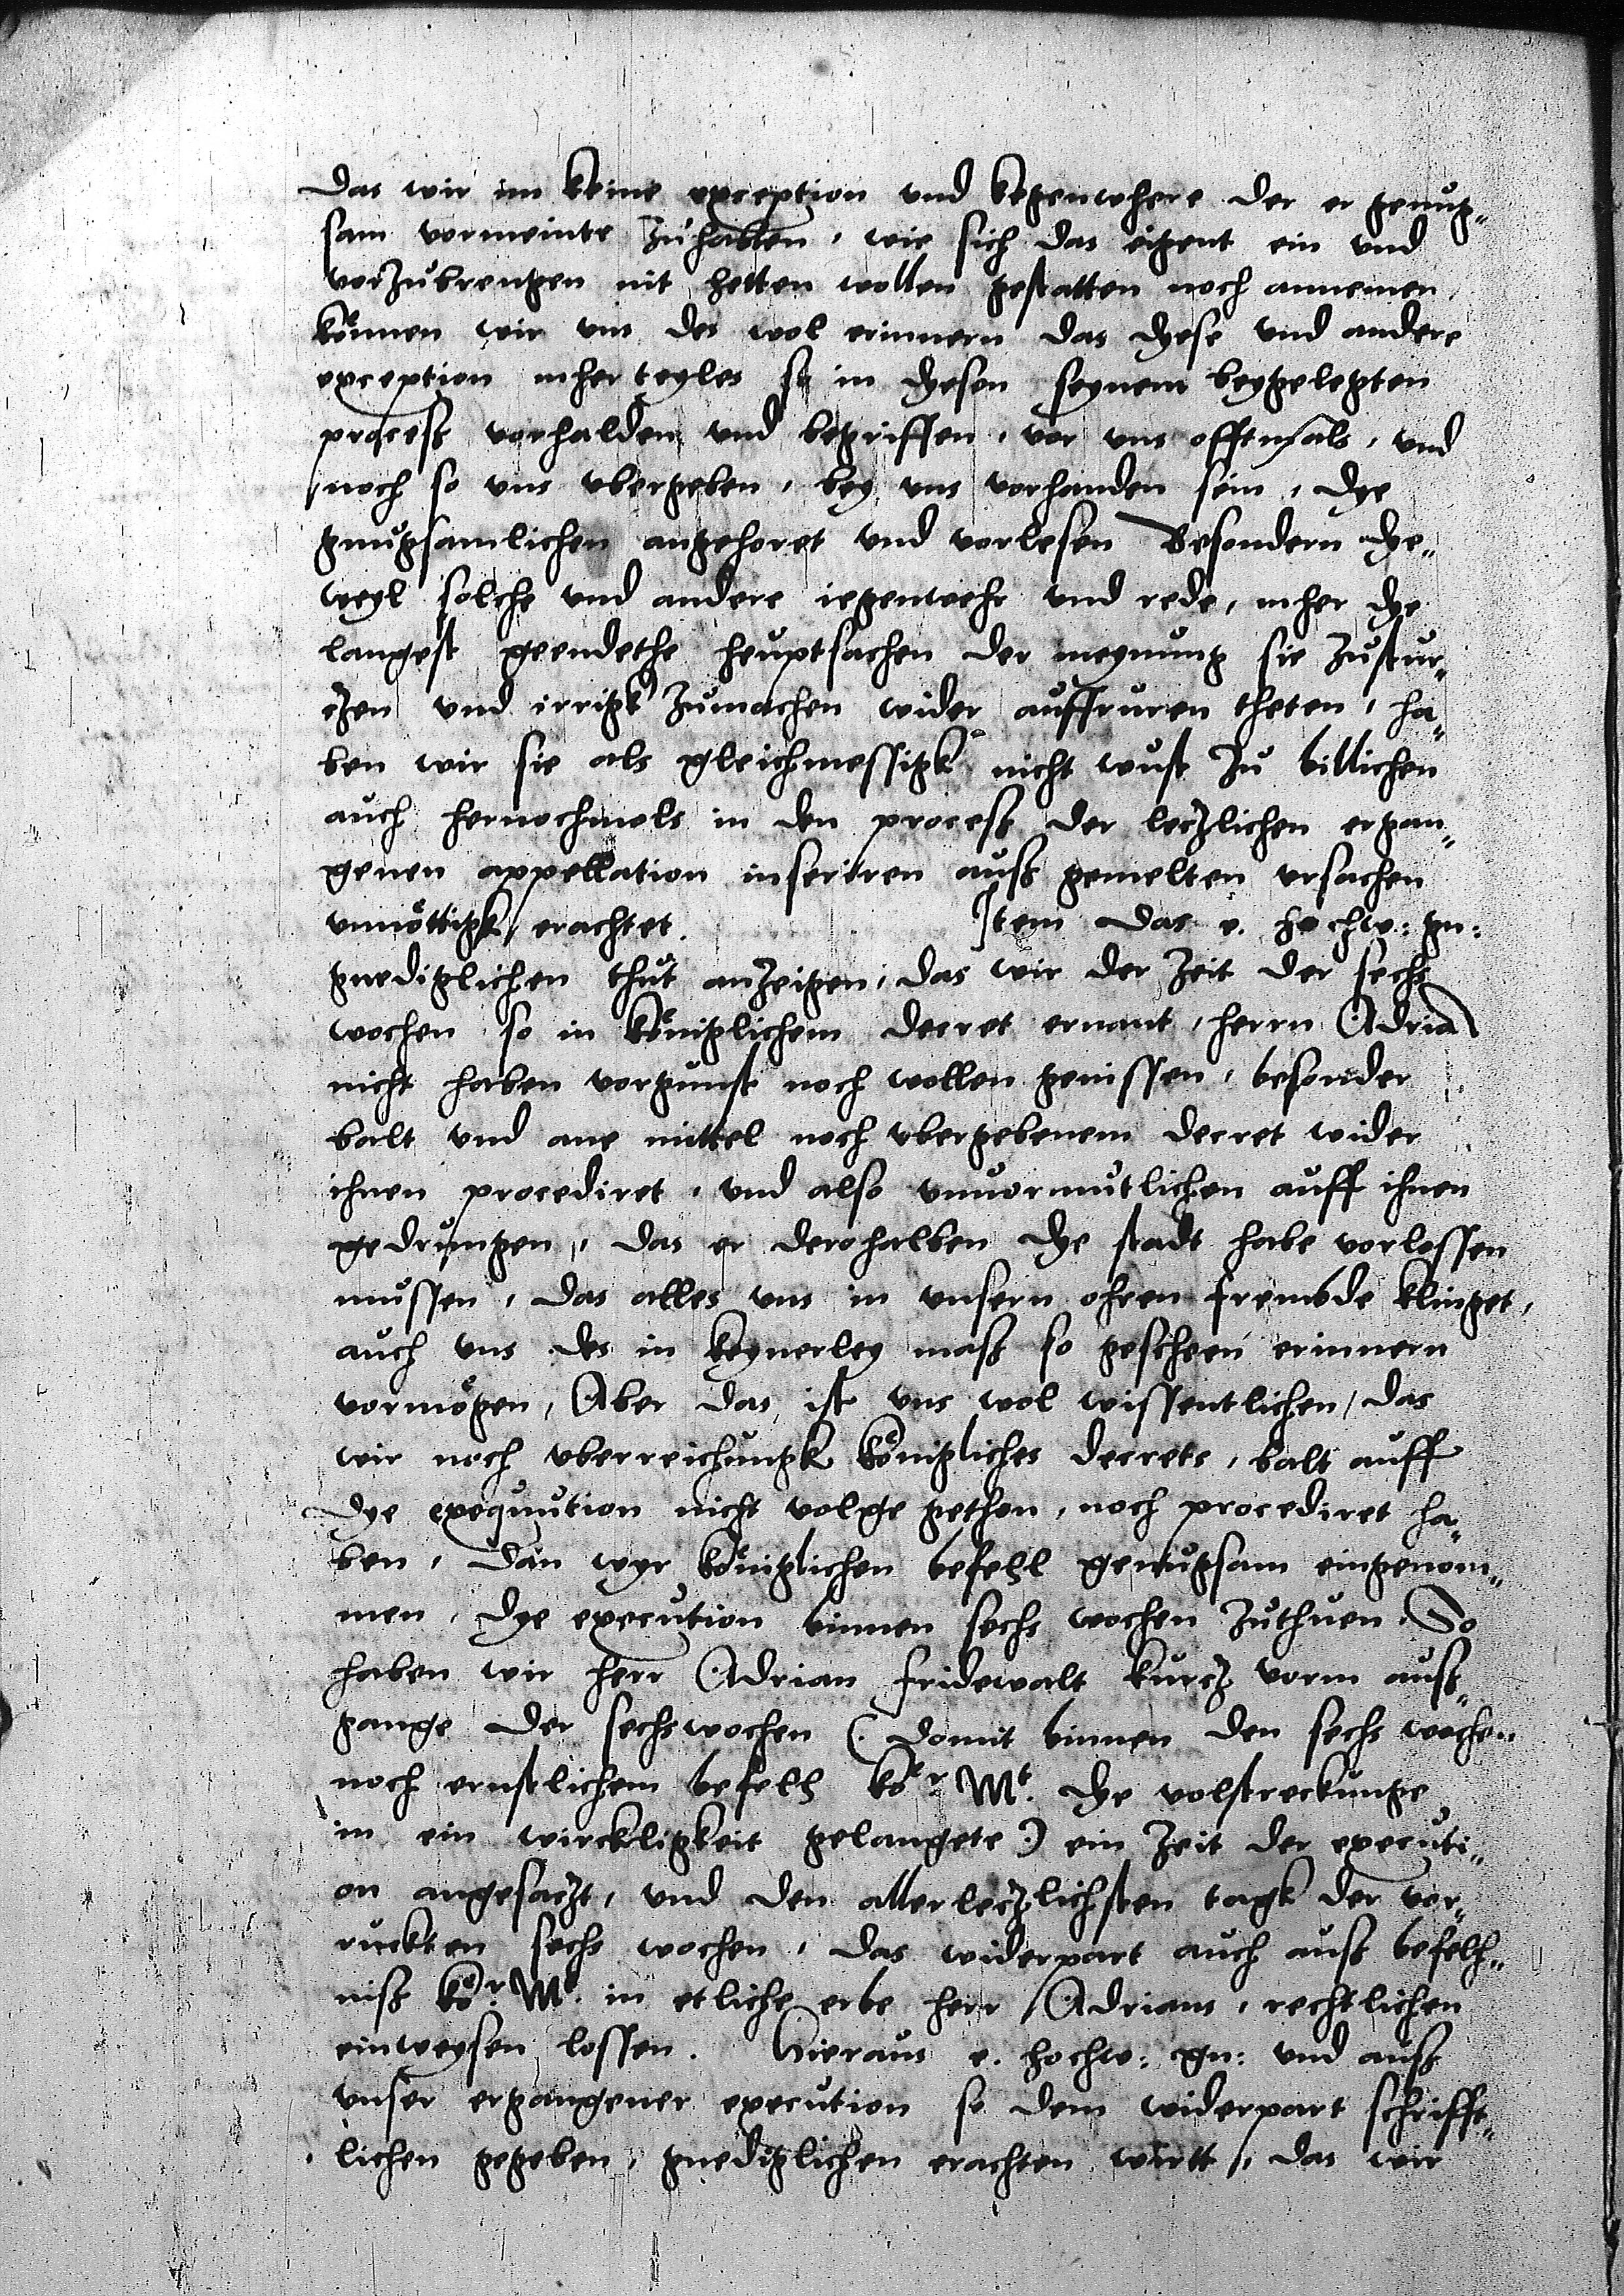 Das wir im keine exception und kegenwhere der er genug„
sam vormeinte zuhaben, wie sich das eigent ein und
vorzubrengen nit hetten wollen gestatten noch annemen
können wir uns des wol erinnern das dyse und andere
exception mher teyles so in dysen seynem beygelegten
process vorhalden und begriffen, vor uns offtmals, und
noch so uns ubergeben, bey uns vorhanden sein, dye
gnugsamlichen angehoret und vorlesen Besondern dye„
weyl solche und andere iegenwehr und rede, mher dye
langest geendethe heuptsachen der meynung sie zustur„
tzen und irrigk zumachen wider auffruren theten, ha„
ben wir sie als gleichmessigk nicht wust zu billichen
auch hernochmols in den process der letzlichen ergan„
genen appellation inseriren auss gemelten ursachen
unnöttigk erachtet. Item das e. hochw: gn:
gnediglichen thut anzeigen, das wir der zeit der sechs
wochen so in königlichem decret ernant, herrn Adrian
nicht haben vorgunst noch wollen genissen, besonder
balt und ane mittel noch ubergebenem decret wider
ihnen procediret, und also unuormutlichen auff ihnen
gedrungen, das er derohalben dye stadt habe vorlossen
mussen, das alles uns in unsern ohren frembde klinget,
auch uns des in keynerley mass so gescheen erinnern
vormögen, Aber das ist uns wol wissentlichen, das
wir noch uberreichungk königliches decrets, balt auff
dye exequution nicht volge gethon, noch procediret ha„
ben, Dan wyr königlichen befehl genugsam eingenom„
men, dye execution binnen sechs wochen zuthuen, So
haben wir herr Adrian fridewalt kurtz vorm auss„
gange der sechswochen (: domit binnen den sechs wochen
noch ernstlichem befelh kör. Mt. dye volstreckunge
in ein wirckligkeit gelangete :) ein zeit der executi„
on angesatzt, und den aller letzlichsten tagk der vor„
ruckten sechs wochen, das widerpart auch auss befelh„
niss kör. Mt. in etliche erbe herr Adrians, rechtlichen
einweysen lossen. Hieraus e. hochw: gn: und auss
unser ergangener execution so dem widerpart schrifft„
lichen gegeben, gnediglichen erachten wirtt, das wir